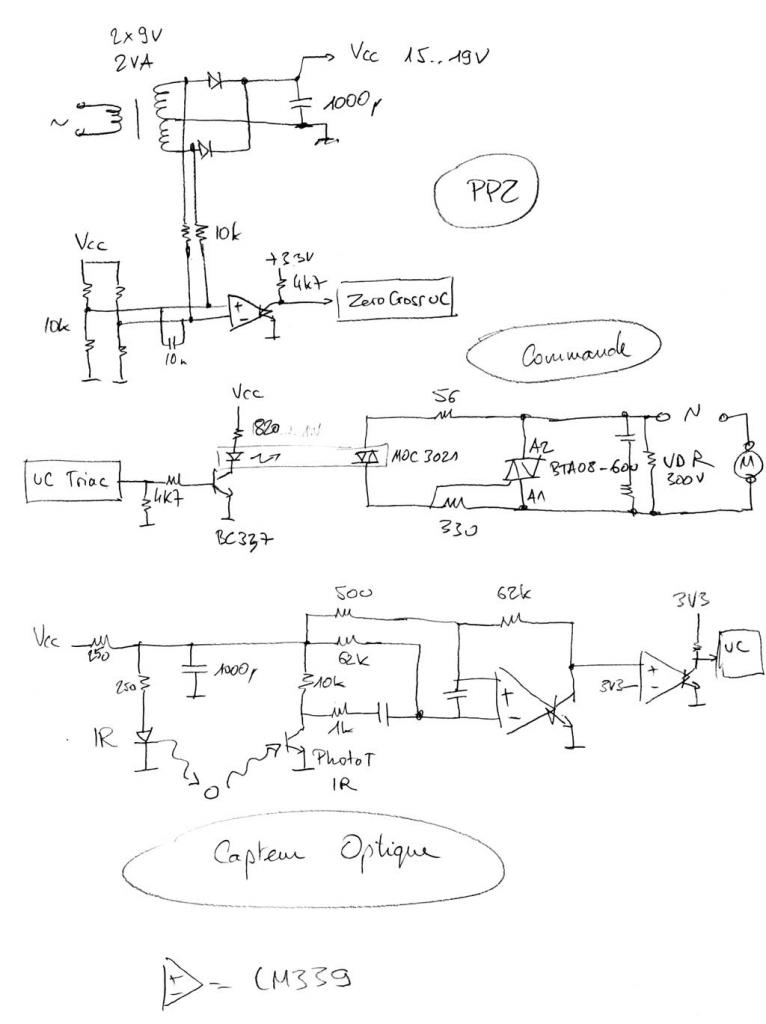 2x9V
2VA
Vcc 15..19V
1000µ
~
PPZ
10k
Vcc
+33V
4k7
+
-
Zero Cross uC
10k
10n
Commande
Vcc
820
56
N
A2
MOC 3021
BTA08-600
VDR
300V
M
uC Triac
4k7
A1
330
BC337
500
62k
3V3
Vcc
250
62k
uC
1000µ
250
10k
+
-
+
-
3V3
IR
1k
PhotoT
IR
Capteur Optique
+
-
= LM339